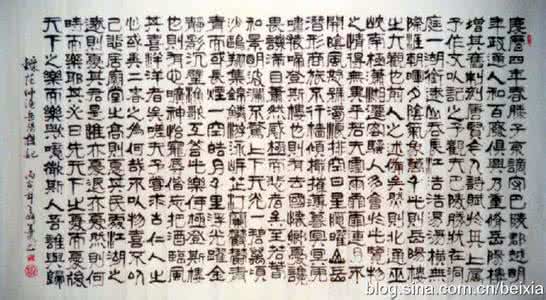 慶曆四年春滕子京謫守巴陵郡越明
年政通人和百廢俱興乃重修岳陽樓
增其舊制刻唐賢今人詩賦於其上屬
予作文以記之予觀夫巴陵勝狀在洞
庭一湖銜遠山吞長江浩浩湯湯橫無
際涯朝暉夕陰氣象萬千此則岳陽樓
之大觀也前人之述備矣然則北通巫
峽南極瀟湘遷客騷人多會於此覽物
之情得無異乎若夫霪雨霏霏連月不
開陰風怒號濁浪排空日星隱曜山岳
潛形商旅不行檣傾楫摧薄暮冥冥虎
嘯猿啼登斯樓也則有去國懷鄉憂讒
畏譏滿目蕭然感極而悲者矣至若春
和景明波瀾不驚上下天光一碧萬頃
沙鷗翔集錦鱗游泳岸芷汀蘭鬱鬱青
青而或長煙一空皓月千里浮光躍金
靜影沉璧漁歌互答此樂何極登斯樓
也則有心曠神怡寵辱偕忘把酒臨風
其喜洋洋者矣嗟夫予嘗求古仁人之
心或異二者之為何哉不以物喜不以
己悲居廟堂之高則憂其民處江湖之
遠則憂其君是進亦憂退亦憂然則何
時而樂耶其必曰先天下之憂而憂後
天下之樂而樂歟噫微斯人吾誰與歸
錄范仲淹岳陽樓記
blog.sina.com.cn/beixia